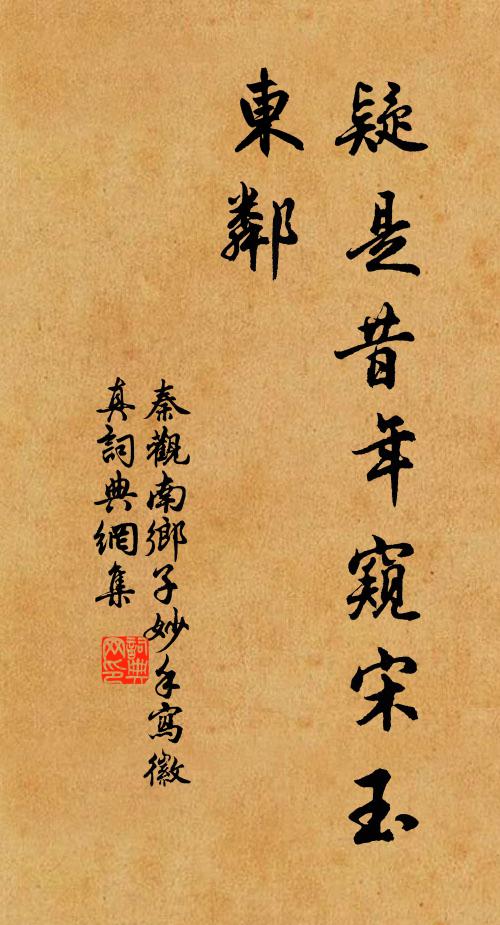 疑是昔年窺宋玉
東鄰
秦觀南鄉子妙手寫徽
真詞典網集
詞典
网印